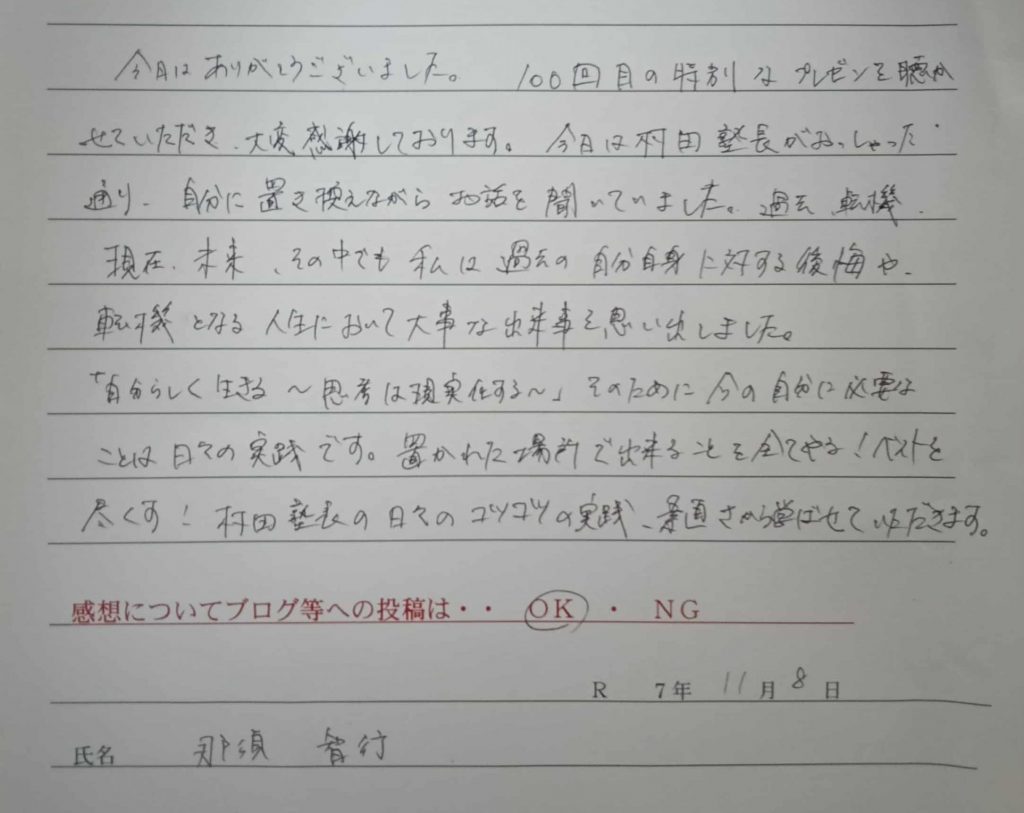 今日はありがとうございました。 100回目の特別なプレゼンを聴か
せていただき、大変感謝しております。今日は村田塾長がおっしゃった
通り、自分に置き換えながらお話を聞いていました。過去、転機、
現在、未来、その中でも私は過去の自分自身に対する後悔や、
転機となる人生において大事な出来事を思い出しました。
「自分らしく生きる～思考は現実化する～」そのために今の自分に必要な
ことは日々の実践です。置かれた場所で出来ることを全てやる！ベストを
尽くす！村田塾長の日々のコツコツの実践、素直さから学ばせていただきます。
感想についてブログ等への投稿は・・ OK ・ NG
R 7年 11月 8日
氏名 那須 智行